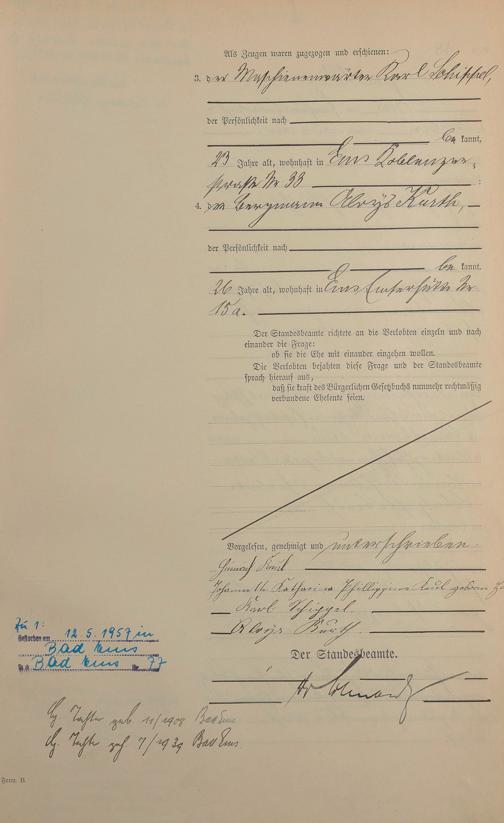 Als Zeugen waren zugezogen und erschienen:
3. der Maschienenwärter Karl Schippel,
der Persönlichkeit nach
be kannt,
23 Jahre alt, wohnhaft in Ems Koblenzer-
straße Nr 33
4. der Bergmann Aloys Kurth,
der Persönlichkeit nach
be kannt,
26 Jahre alt, wohnhaft in Ems Emserhütte Nr
15a.
Der Standesbeamte richtete an die Verlobten einzeln und nach
einander die Frage:
ob sie die Ehe mit einander eingehen wollen.
Die Verlobten bejahten diese Frage und der Standesbeamte
sprach hierauf aus,
daß sie kraft des Bürgerlichen Gesetzbuchs nunmehr rechtmäßig
verbundene Eheleute seien.
Vorgelesen, genehmigt und unterschrieben
Johannette Katharina Phillippine geboren
Karl Schippel
Aloys Kurth
Der Standesbeamte.
Zu 1:
Gestorben am 12.5.1957 in
Bad Ems
St.A. Bad Ems Nr. 77
Tochter geb. 11/1908 Bad Ems
Tochter geh 7/1939 Bad Ems
Form. B.